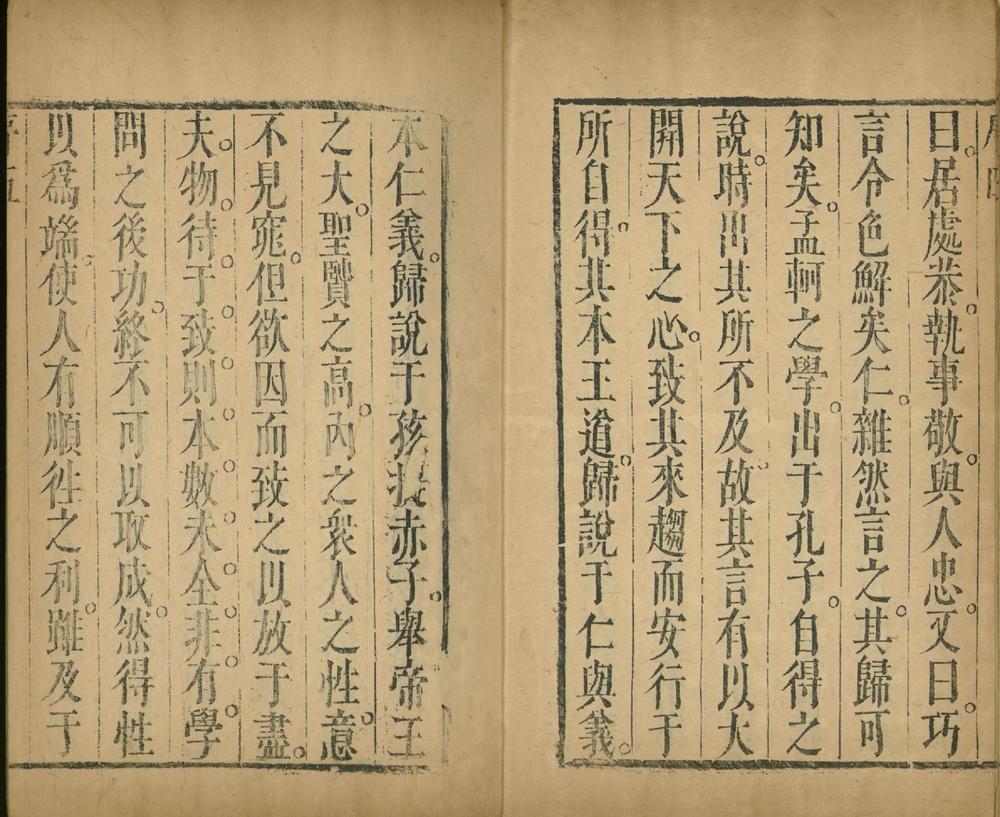 曰。居處恭。執事敬。與人忠。又曰。巧
言令色鮮矣仁。雜然言之。其歸可
知矣。孟軻之學。出于孔子。自得之
說。時出其所不及故其言有以大
開天下之心。致其來趨而安行于
所自得。其本王道。歸說于仁與義。
本仁義。歸說于孩提赤子。舉帝王
之大。聖賢之高。內之衆人之性。意
不見窕。但欲因而致之以放于盡。
夫。物。待。于。致。則。本。數。未。全。非。有。學
問之後功。終不可以取成。然得性
以爲端。使人有順徃之利。雖及于